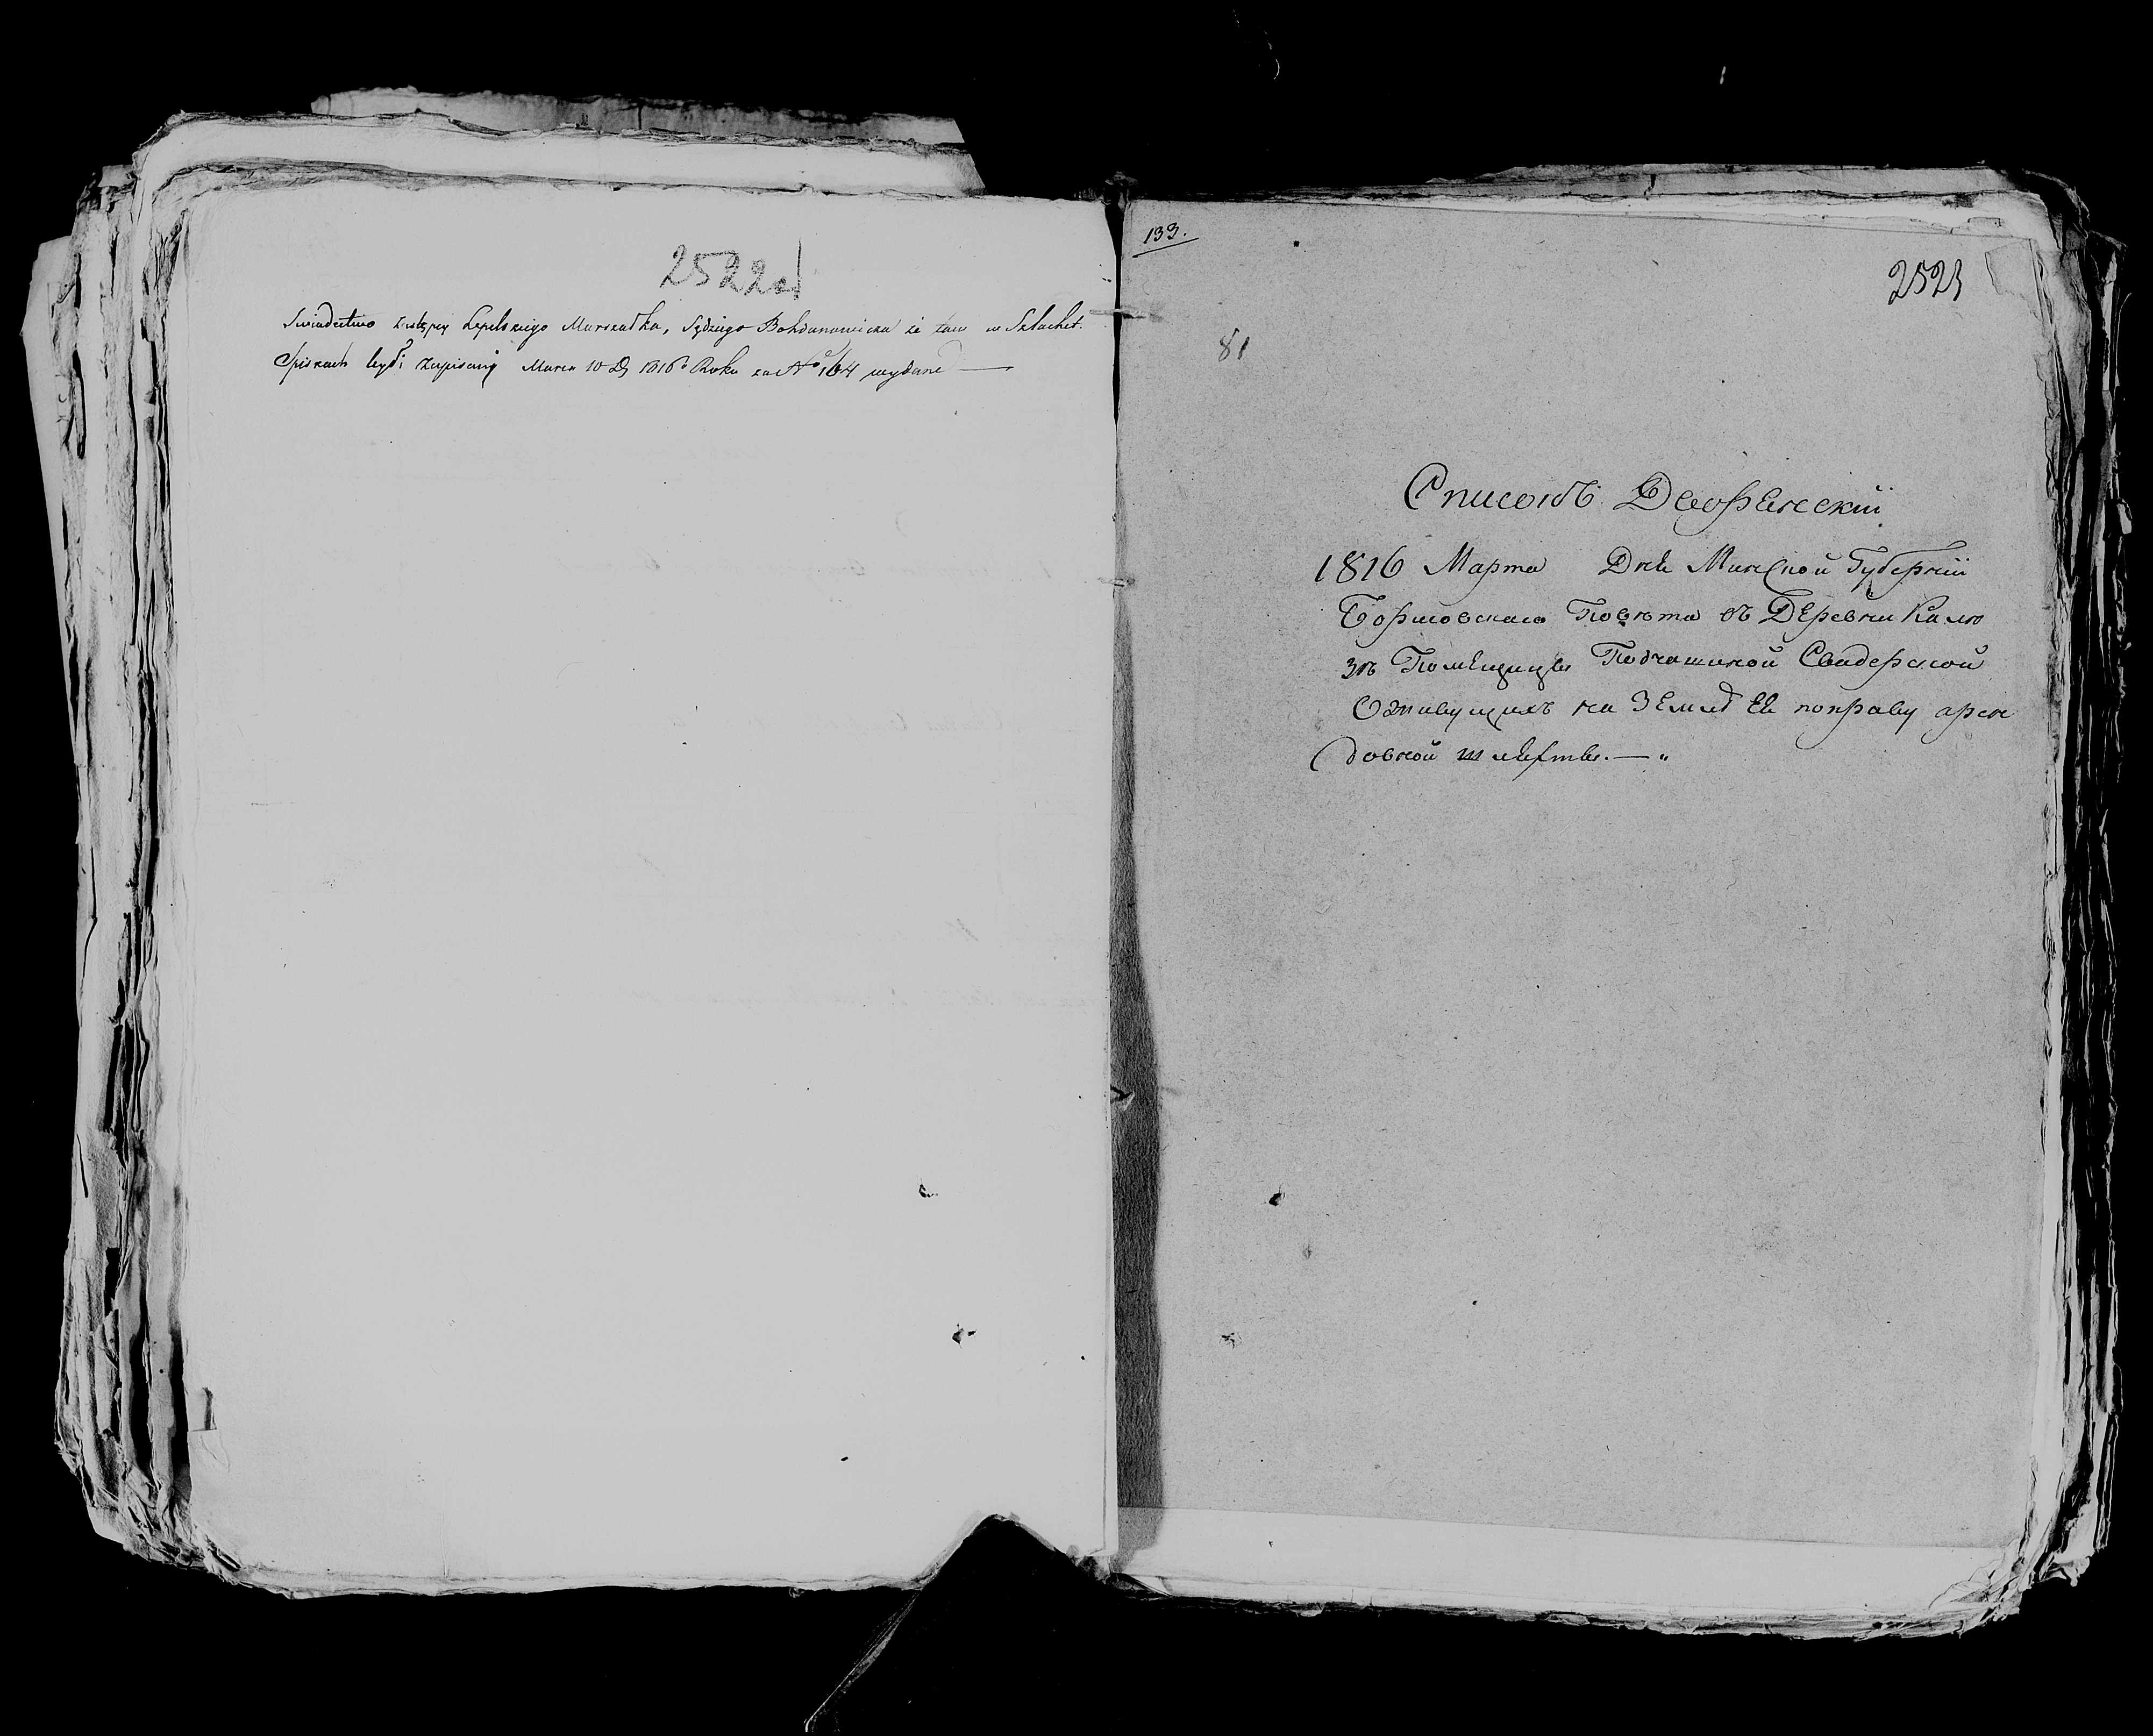 2522об
Swiadectwo zastępcy Lepelskiego Marszałka, Sędziego Bohdanowicza że tam w Szlachet.
Spiskach zapisany Marca 10 D 1816º Roku za Nº 164 wydane —
133.
2523
81
Списокъ Дворенскій
1816 Марта Дня Минской Губерніи
Борисовскаго Повѣта въ Деревни Калю
зѣ Помещицы Подчашиной Свидерской
О живущихъ на Землѣ Ее поправу арен
довной шлехты. — "